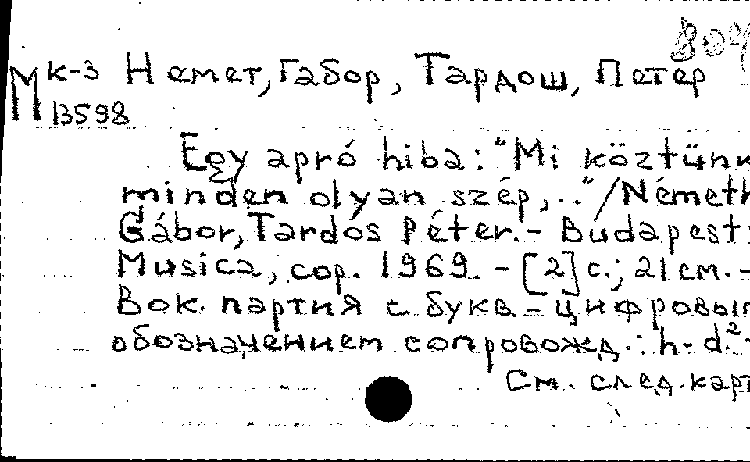 804
М к-3 Немет, Габор, Тардош, Петер
13598
Egy apró hiba: "Mi köztünk
minden olyan szép,.." / Németh
Gábor, Tardos Péter. - Budapest:
Musica, cop. 1969. - [2] с.; 21 см. -
Вок. партия с букв.-цифровым
обозначением сопровожд.: h-d²-
См. след. карт